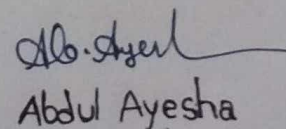 Ab. Ayesh
Abdul Ayesha